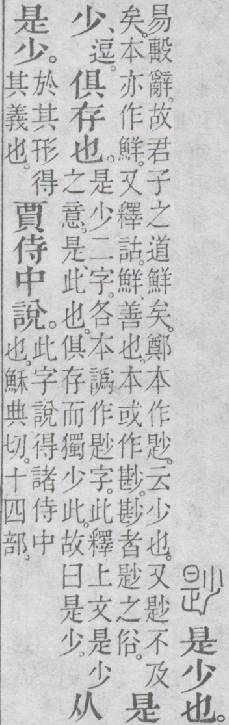 尟 是少也。
易毄辭。故君子之道鮮矣。鄭本作尟。云少也。又尟不及
矣。本亦作鮮。又釋詁。鮮、善也。本或作尠。尠者尟之俗。是
少、逗。俱存也。是少二字。各本譌作尟字。此釋上文是少
之意。是此也。俱存而獨少此。故曰是少。从
是少。於其形得
其義也。賈侍中說。此字說得諸侍中
也。穌典切。十四部。